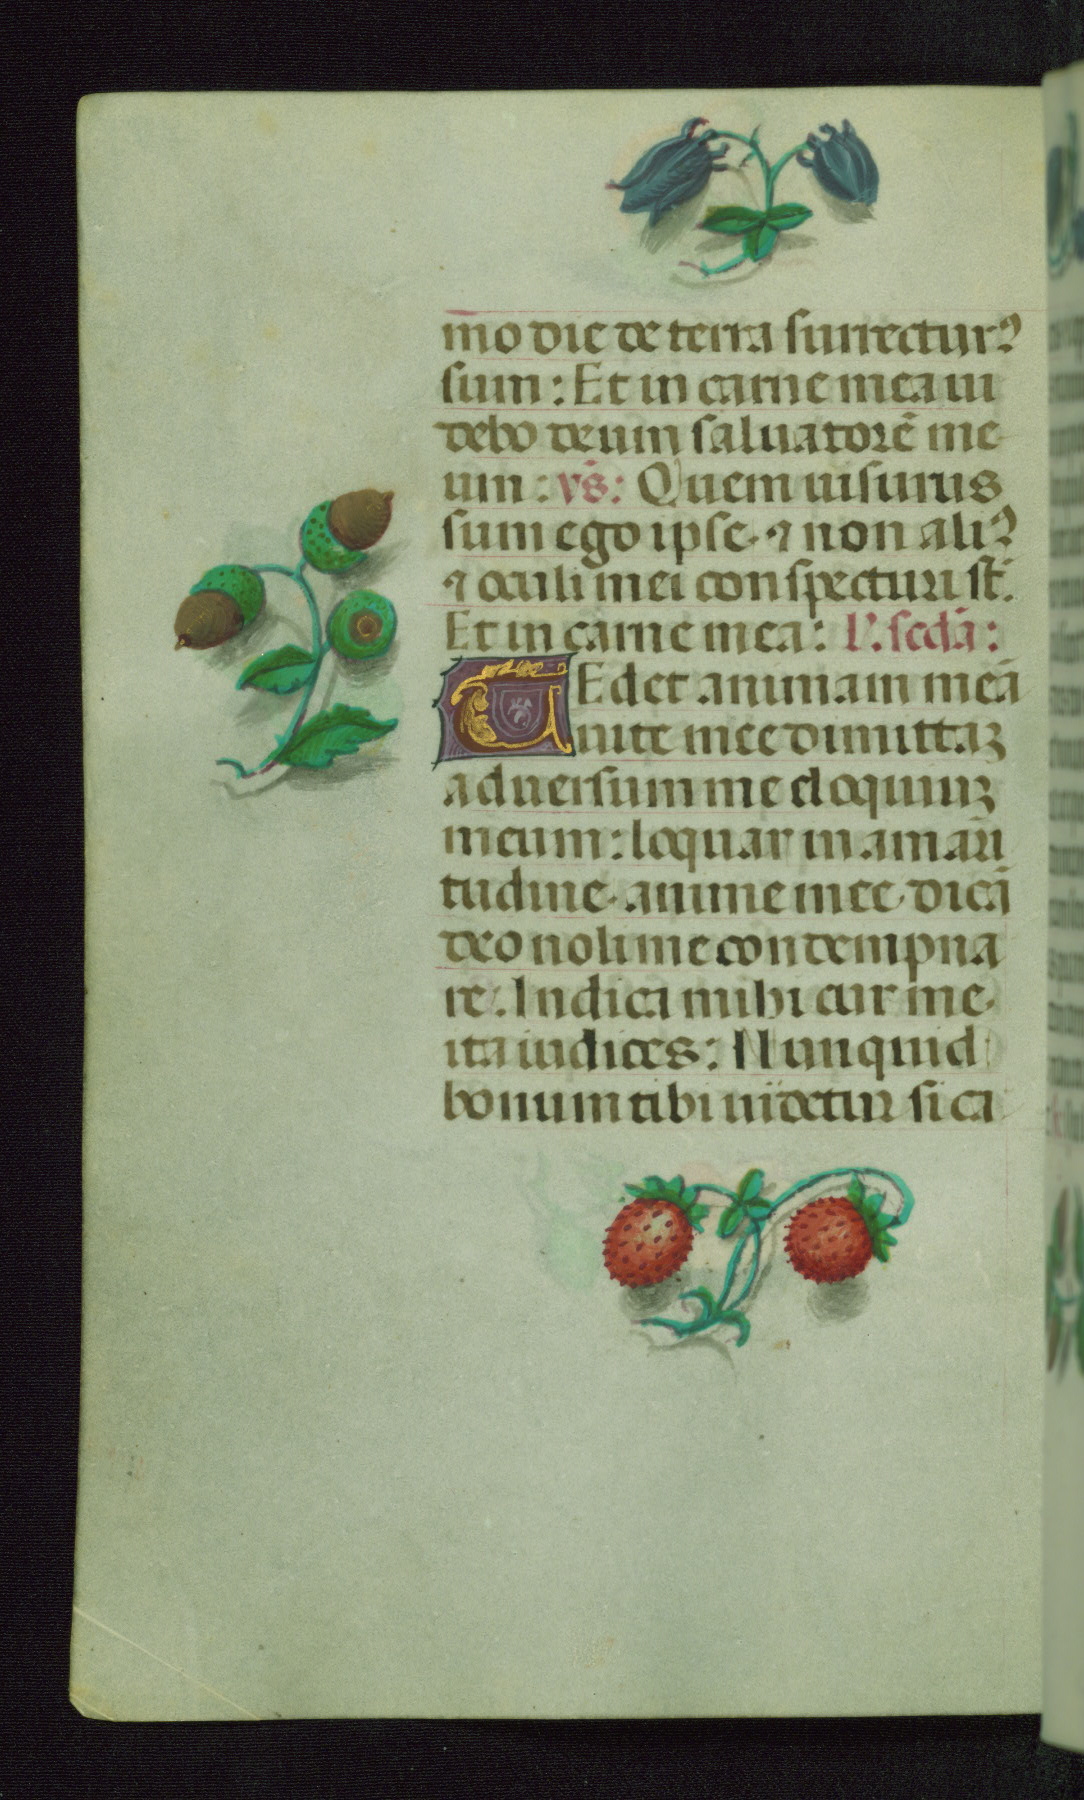 mo die de terra surrectur⁹
sum : Et in carne mea ui
debo deum saluatorē me
um : vs̄ : Quem uisurus
sum ego ipse · ⁊ non ali⁹
⁊ oculi mei conspecturi st̄.
Et in carne mea : l'. scdā :
TEdet animam meā
uite mee dimittaꝫ
aduersum me eloquiuꝫ
meum : loquar in amari
tudine · anime mee · dicā
deo noli me contempna
re : Indica mihi cur me ·
ita iudices : Nunquid
bonum tibi uidetur si ca